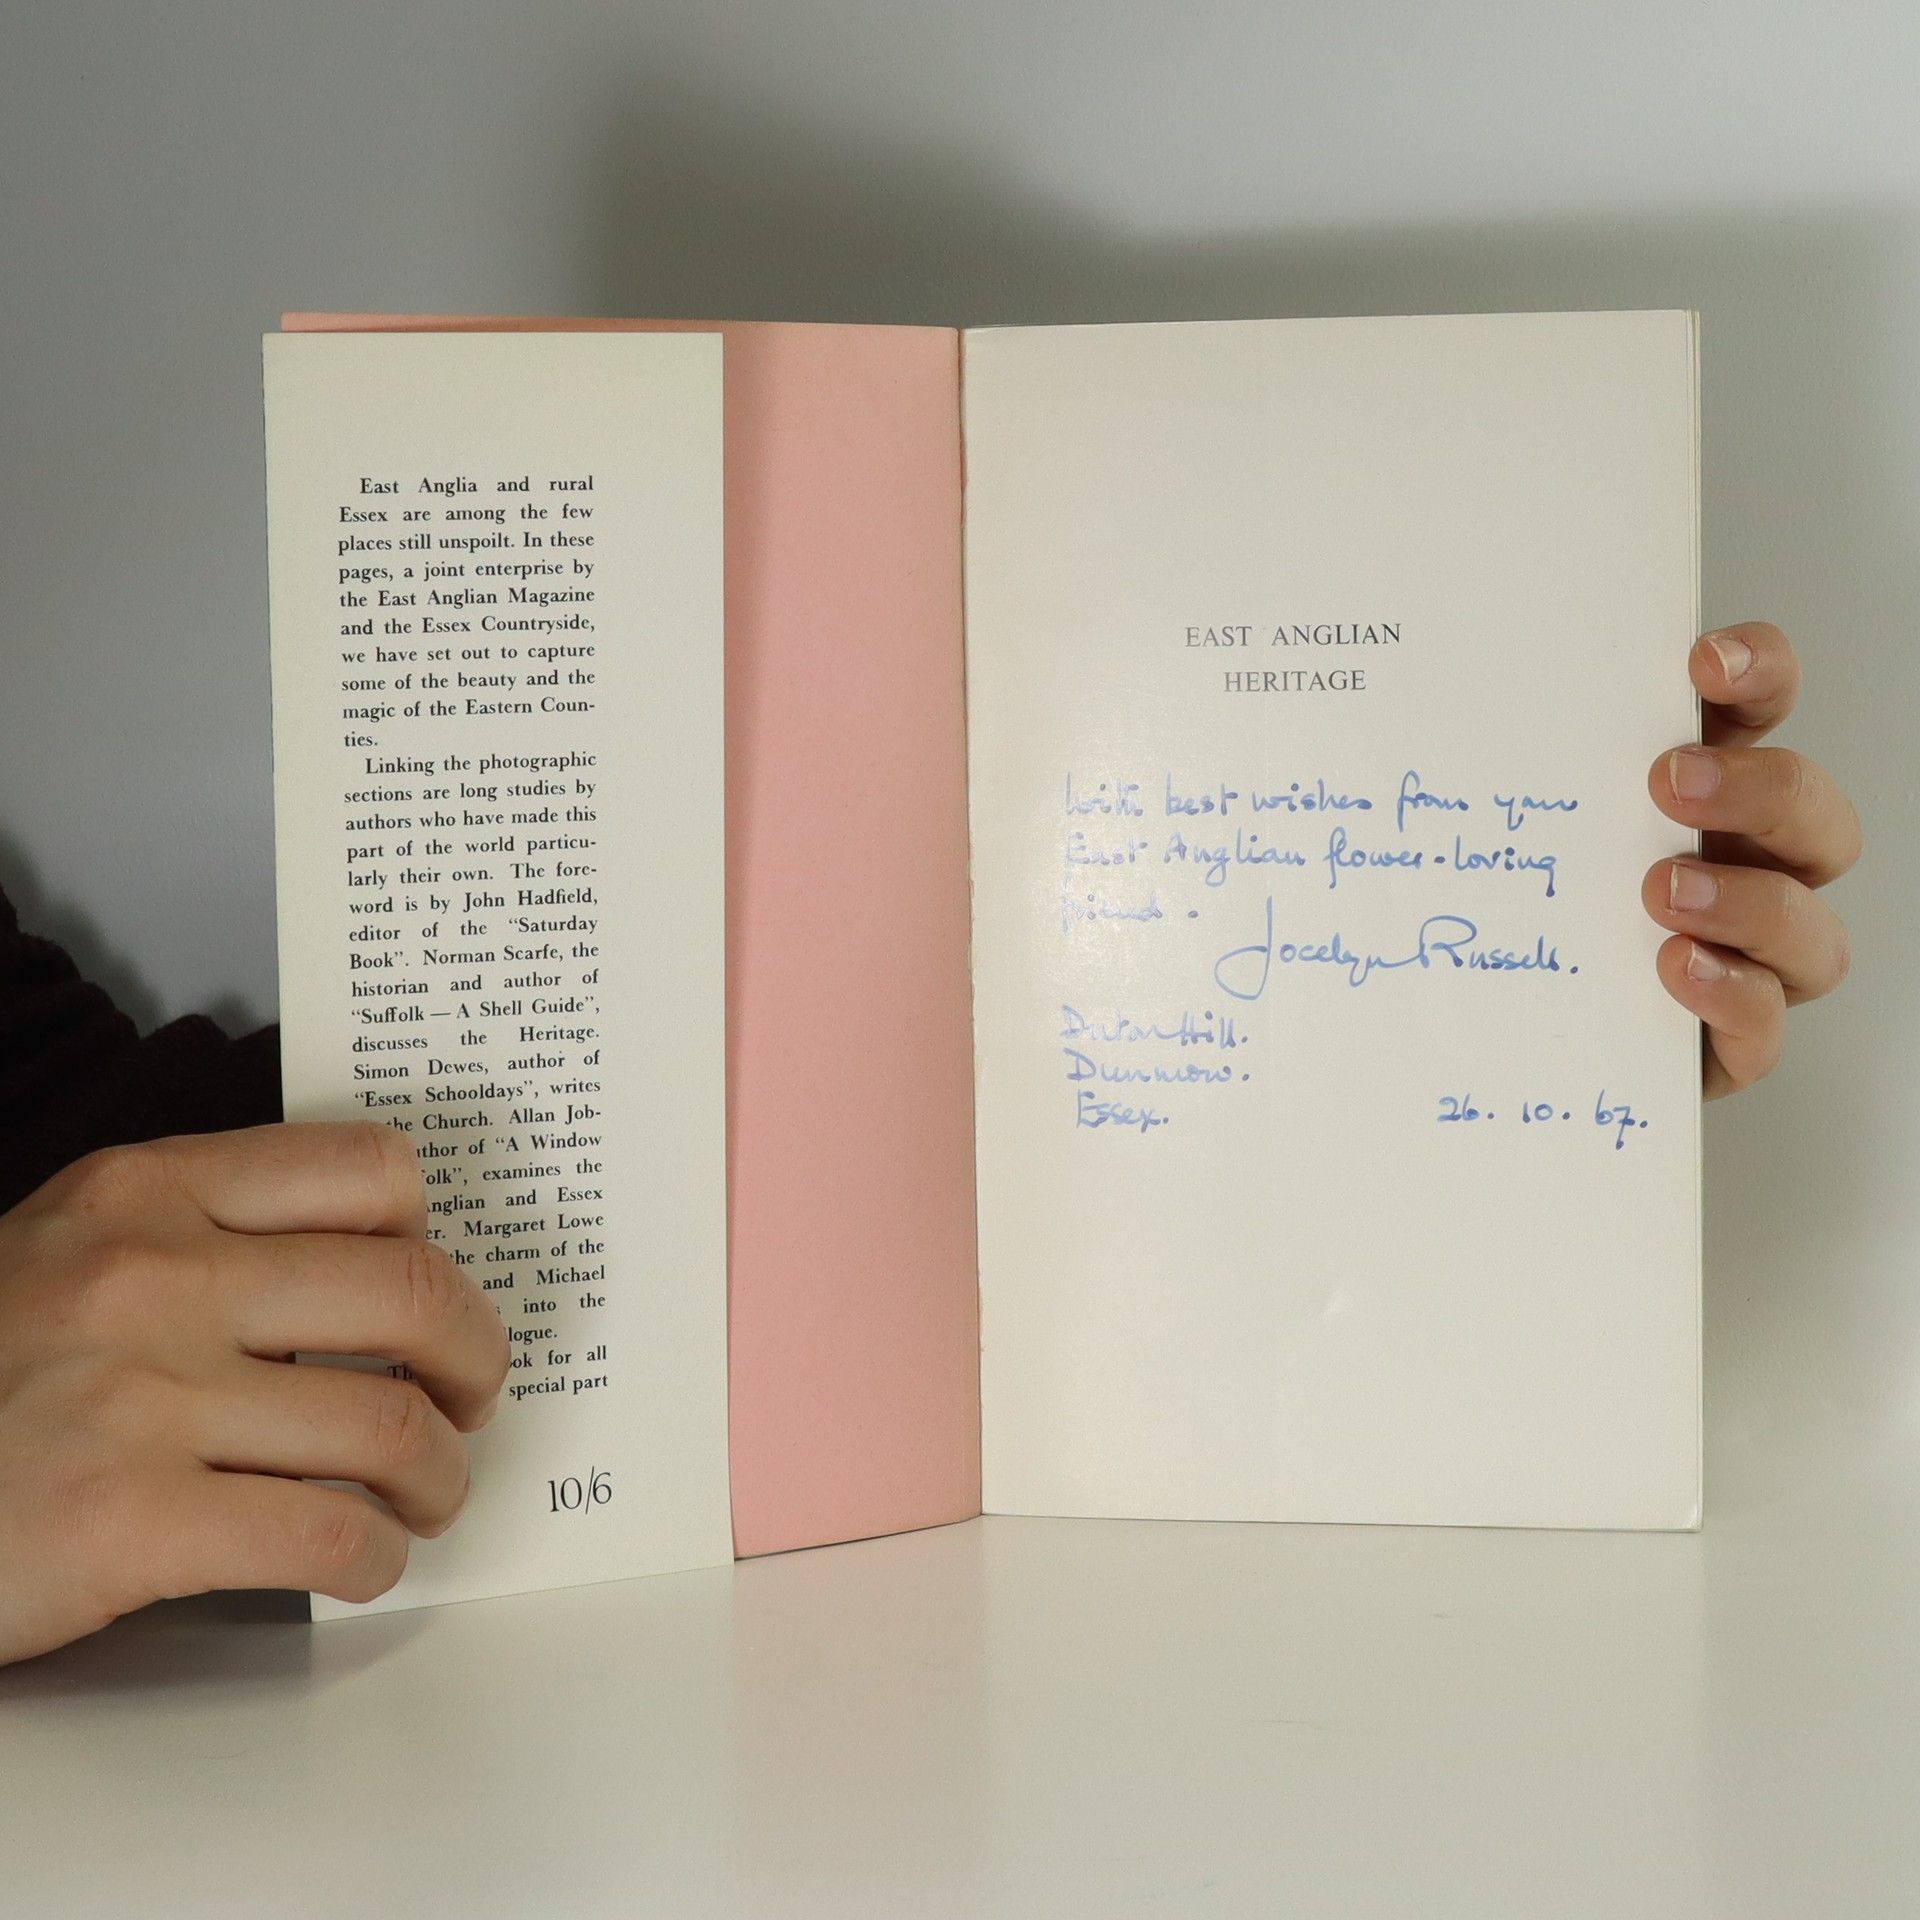 East Anglia and rural
Essex are among the few
places still unspoilt. In these
pages, a joint enterprise by
the East Anglian Magazine
and the Essex Countryside,
we have set out to capture
some of the beauty and the
magic of the Eastern Coun-
ties.
Linking the photographic
sections are long studies by
authors who have made this
part of the world particu-
larly their own. The fore-
word is by John Hadfield,
editor of the “Saturday
Book”. Norman Scarfe, the
historian and author of
“Suffolk — A Shell Guide”,
discusses the Heritage.
Simon Dewes, author of
“Essex Schooldays”, writes
the Church. Allan Job-
of “A Window
examines the
and Essex
Margaret Lowe
the charm of the
and Michael
into the
for all
special part
10/6
EAST ANGLIAN
HERITAGE
With best wishes from your
East Anglian flower-loving
friend.
Jocelyn Russell.
Hill.
Dunmow.
Essex.
26. 10. 67.